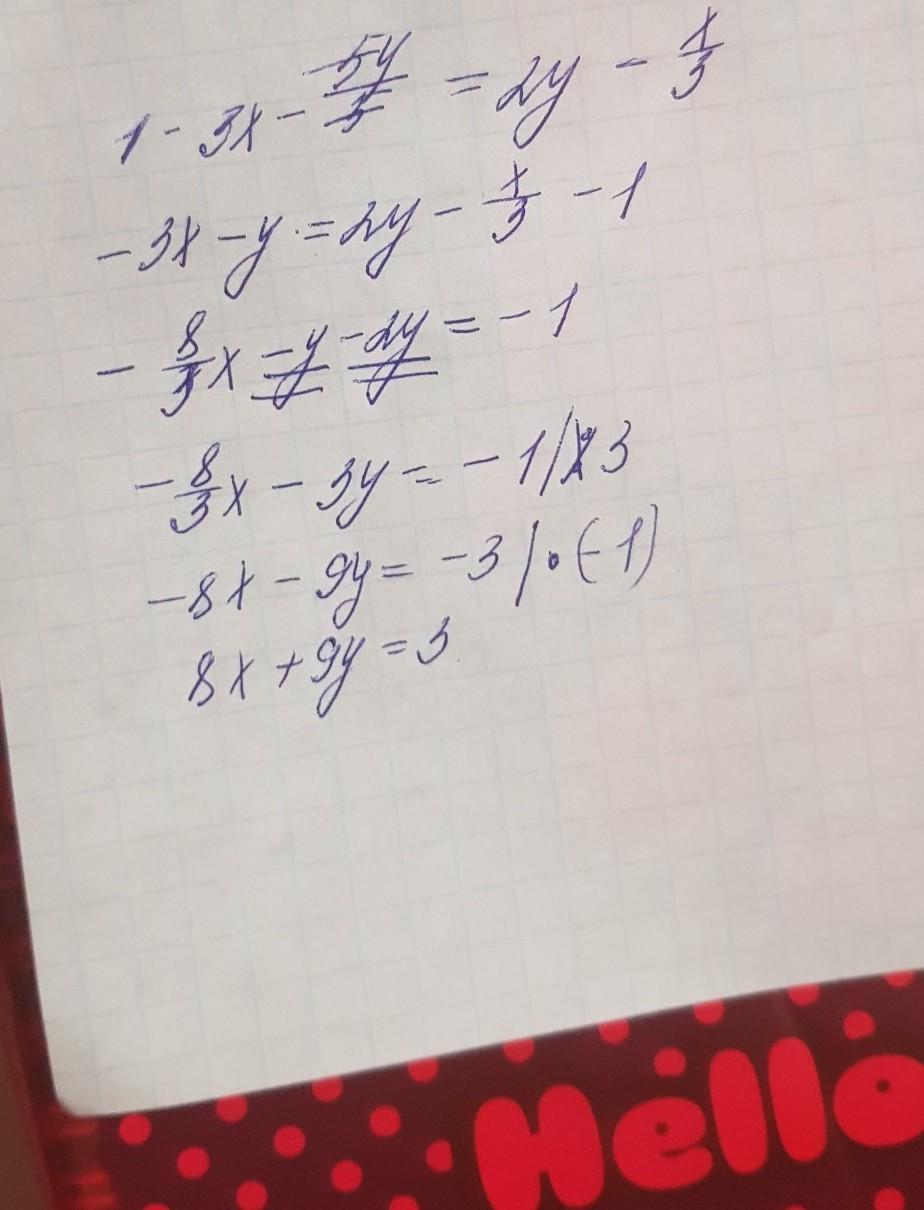 1 - 3x - 5y/5 = 2y - x/3
-3x - y = 2y - x/3 - 1
- 8/3 x - y - 2y = - 1
- 8/3 x - 3y = - 1 / 3
-8x - 9y = -3 / · (-1)
8x + 9y = 3
Hello